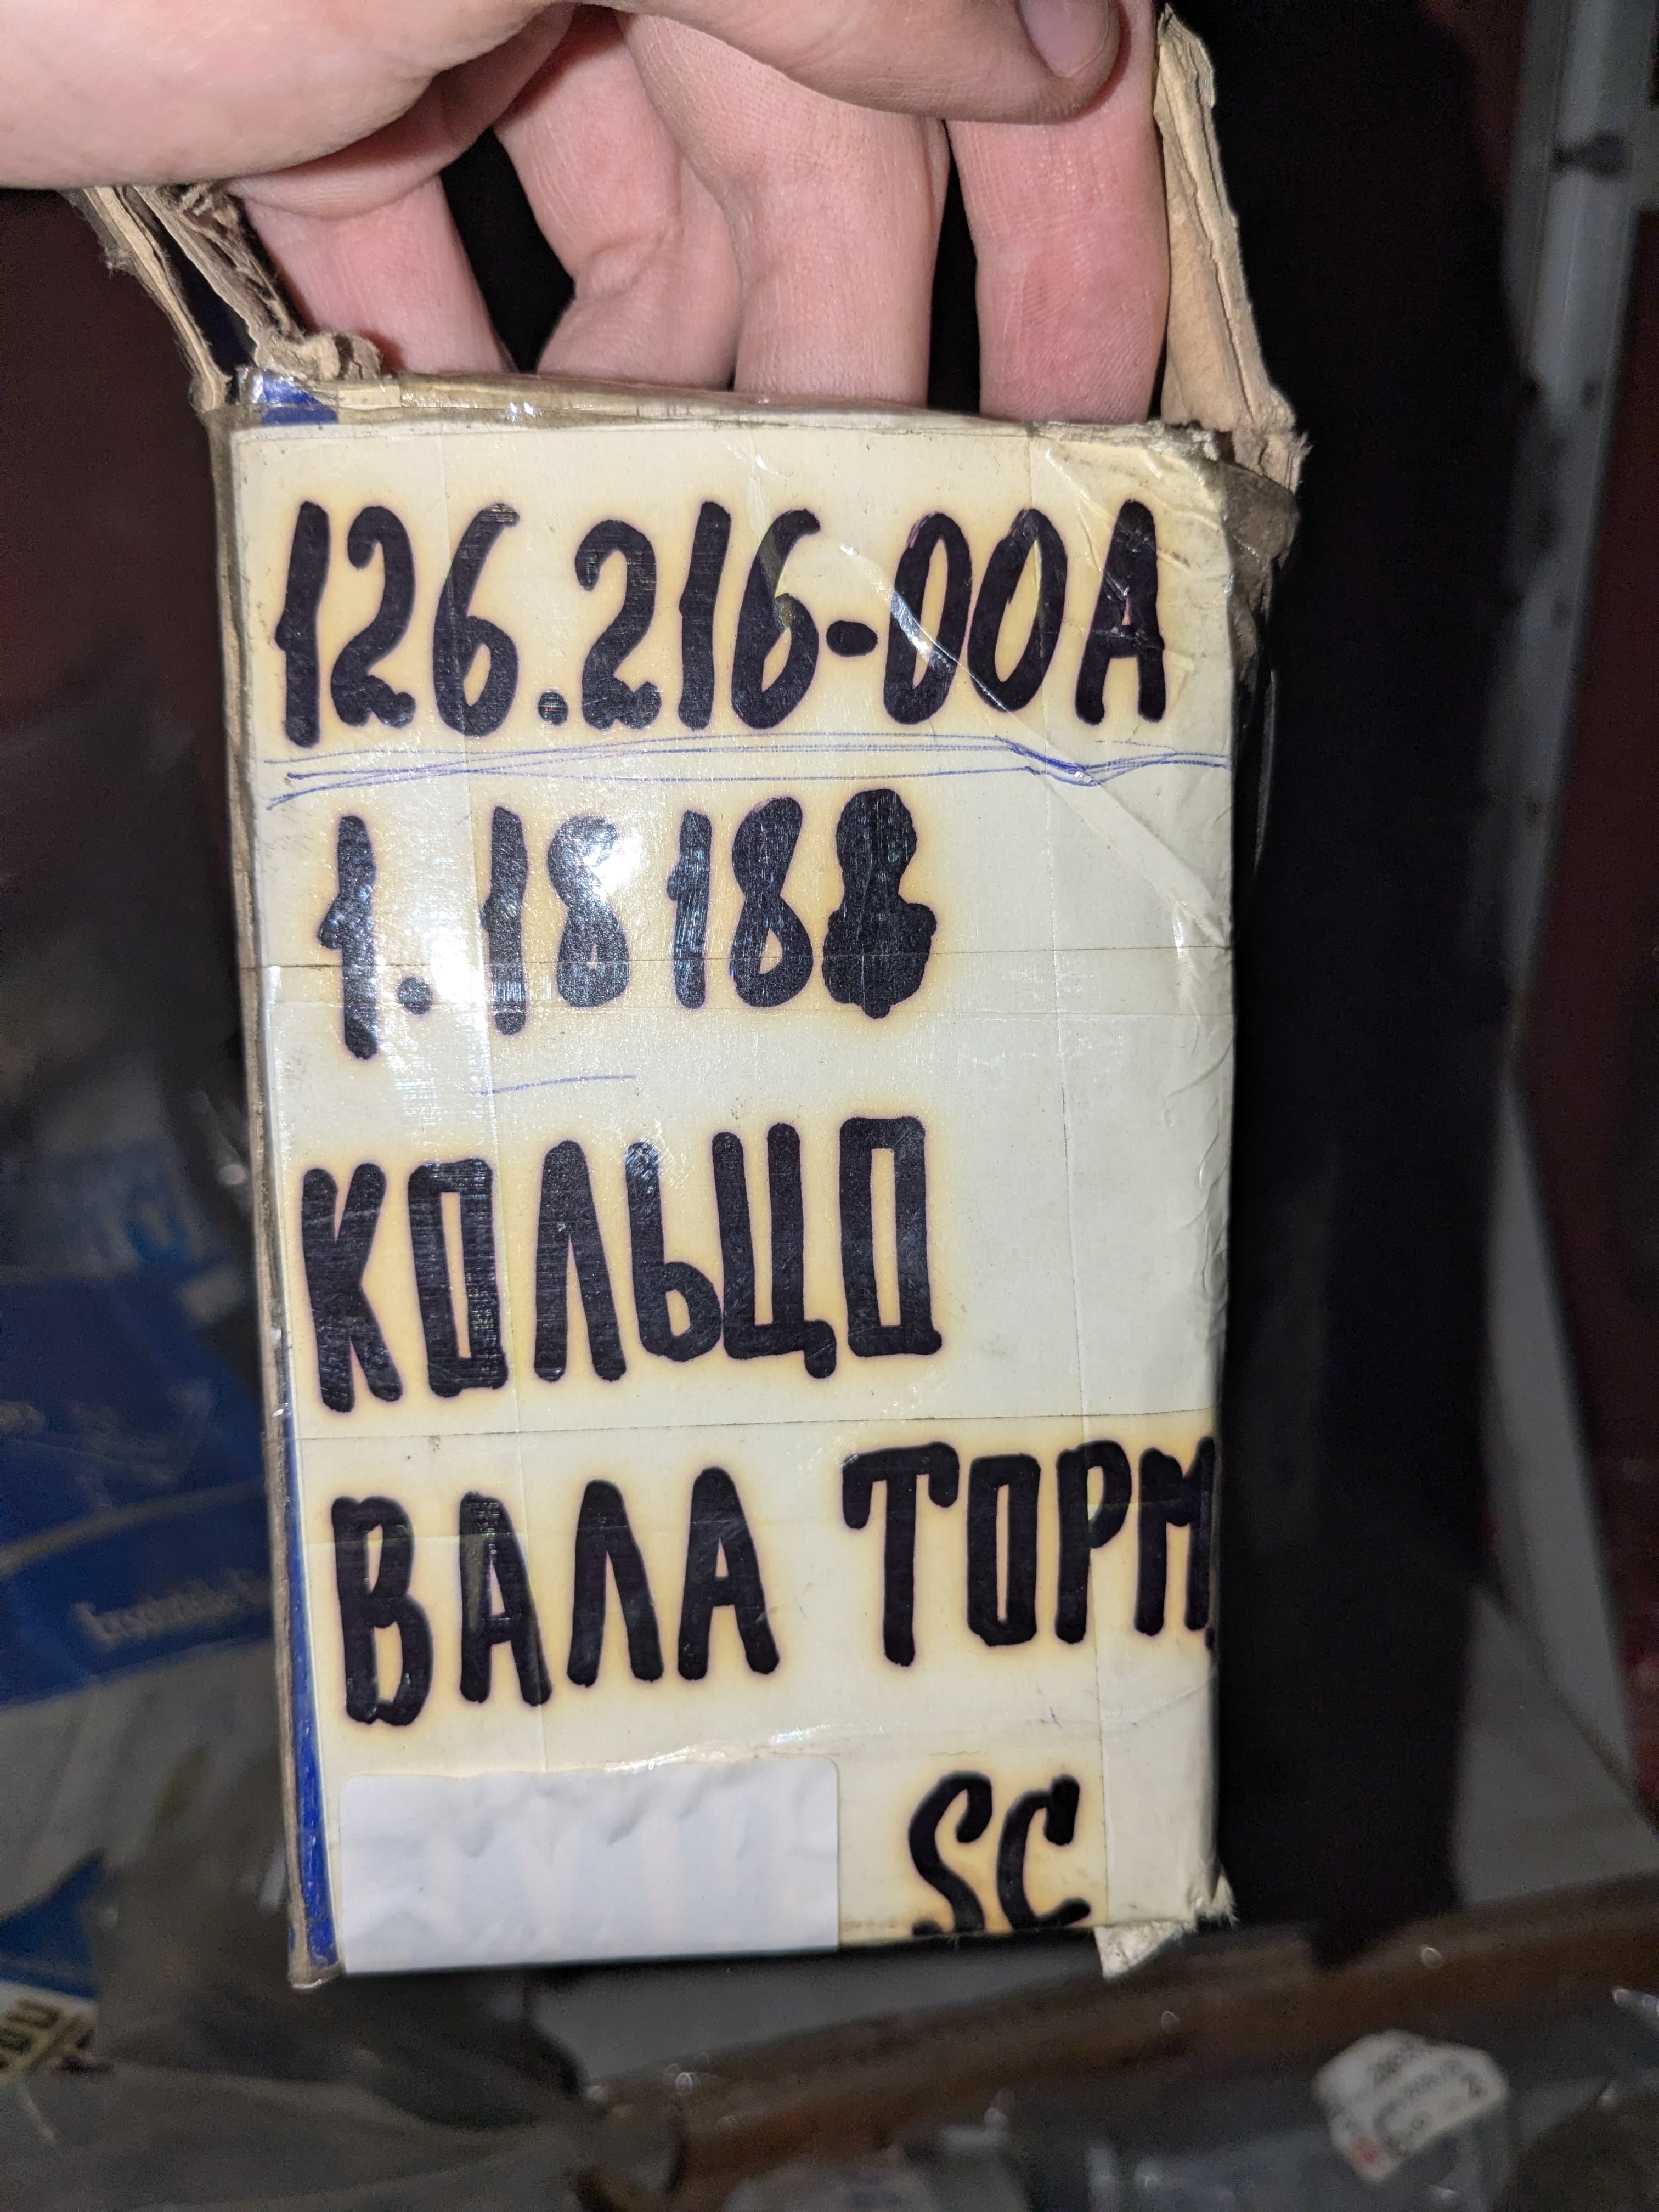 126.216-00A
1.18188
КОЛЬЦО
ВАЛА ТОРМ.
SC